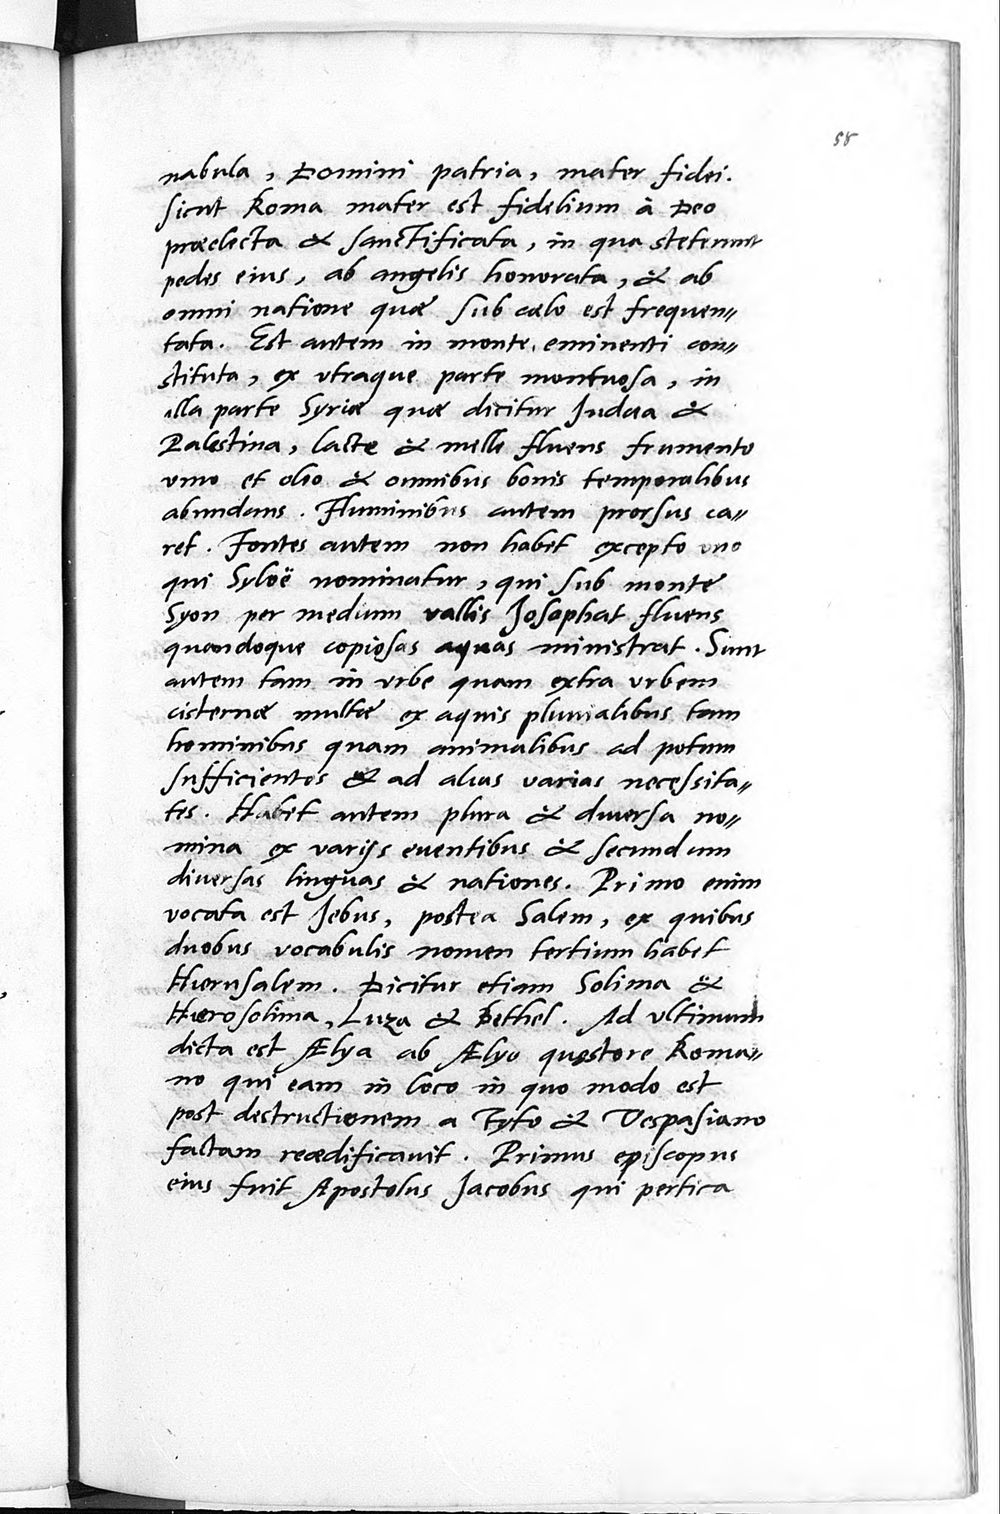 58
nabula, Domini patria, mater fidei.
sicut Roma mater est fidelium à Deo
præelecta & sanctificata, in qua steterunt
pedes eius, ab angelis honorata, & ab
omni natione quæ sub cælo est frequen„
tata. Est autem in monte eminenti con„
stituta, ex vtraque parte montuosa, in
illa parte Syriæ quæ dicitur Judæa &
Palestina, lacte & melle fluens frumento
vino et olio & omnibus bonis temporalibus
abundans. Fluminibus autem prorsus ca„
ret. Fontes autem non habet excepto vno
qui Syloë nominatur, qui sub monte
Syon per medium vallis Josaphat fluens
quandoque copiosas aquas ministrat. Sunt
autem tam in vrbe quam extra vrbem
cisternæ multæ ex aquis pluuialibus tam
hominibus quam animalibus ad potum
sufficientes & ad alias varias necessita„
tes. Habet autem plura & diuersa no„
mina ex varijs euentibus & secundum
diuersas linguas & nationes. Primo enim
vocata est Jebus, postea Salem, ex quibus
duobus vocabulis nomen tertium habet
Hierusalem. Dicitur etiam Solima &
Hierosolima, Luza & Bethel. Ad vltimum
dicta est Ælya ab Ælyo quęstore Roma„
no qui eam in loco in quo modo est
post destructionem a Tyto & Vespasiano
factam reædificauit. Primus episcopus
eius fuit Apostolus Jacobus qui pertica